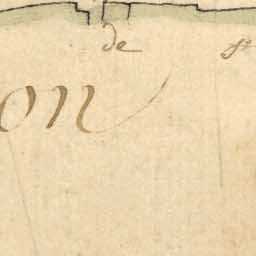 de st
on